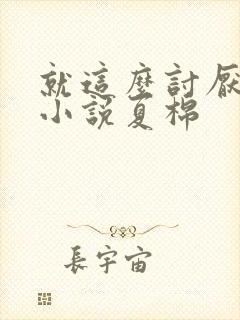 就這麼討厭
小說夏棉
長宇宙